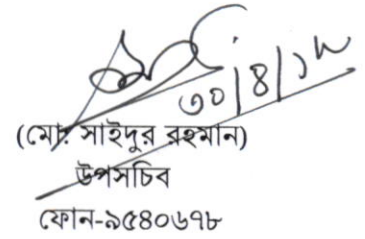 ৩০/৪/১৮
(মোঃ সাইদুর রহমান)
উপসচিব
ফোন-৯৫৪০৬৭৮